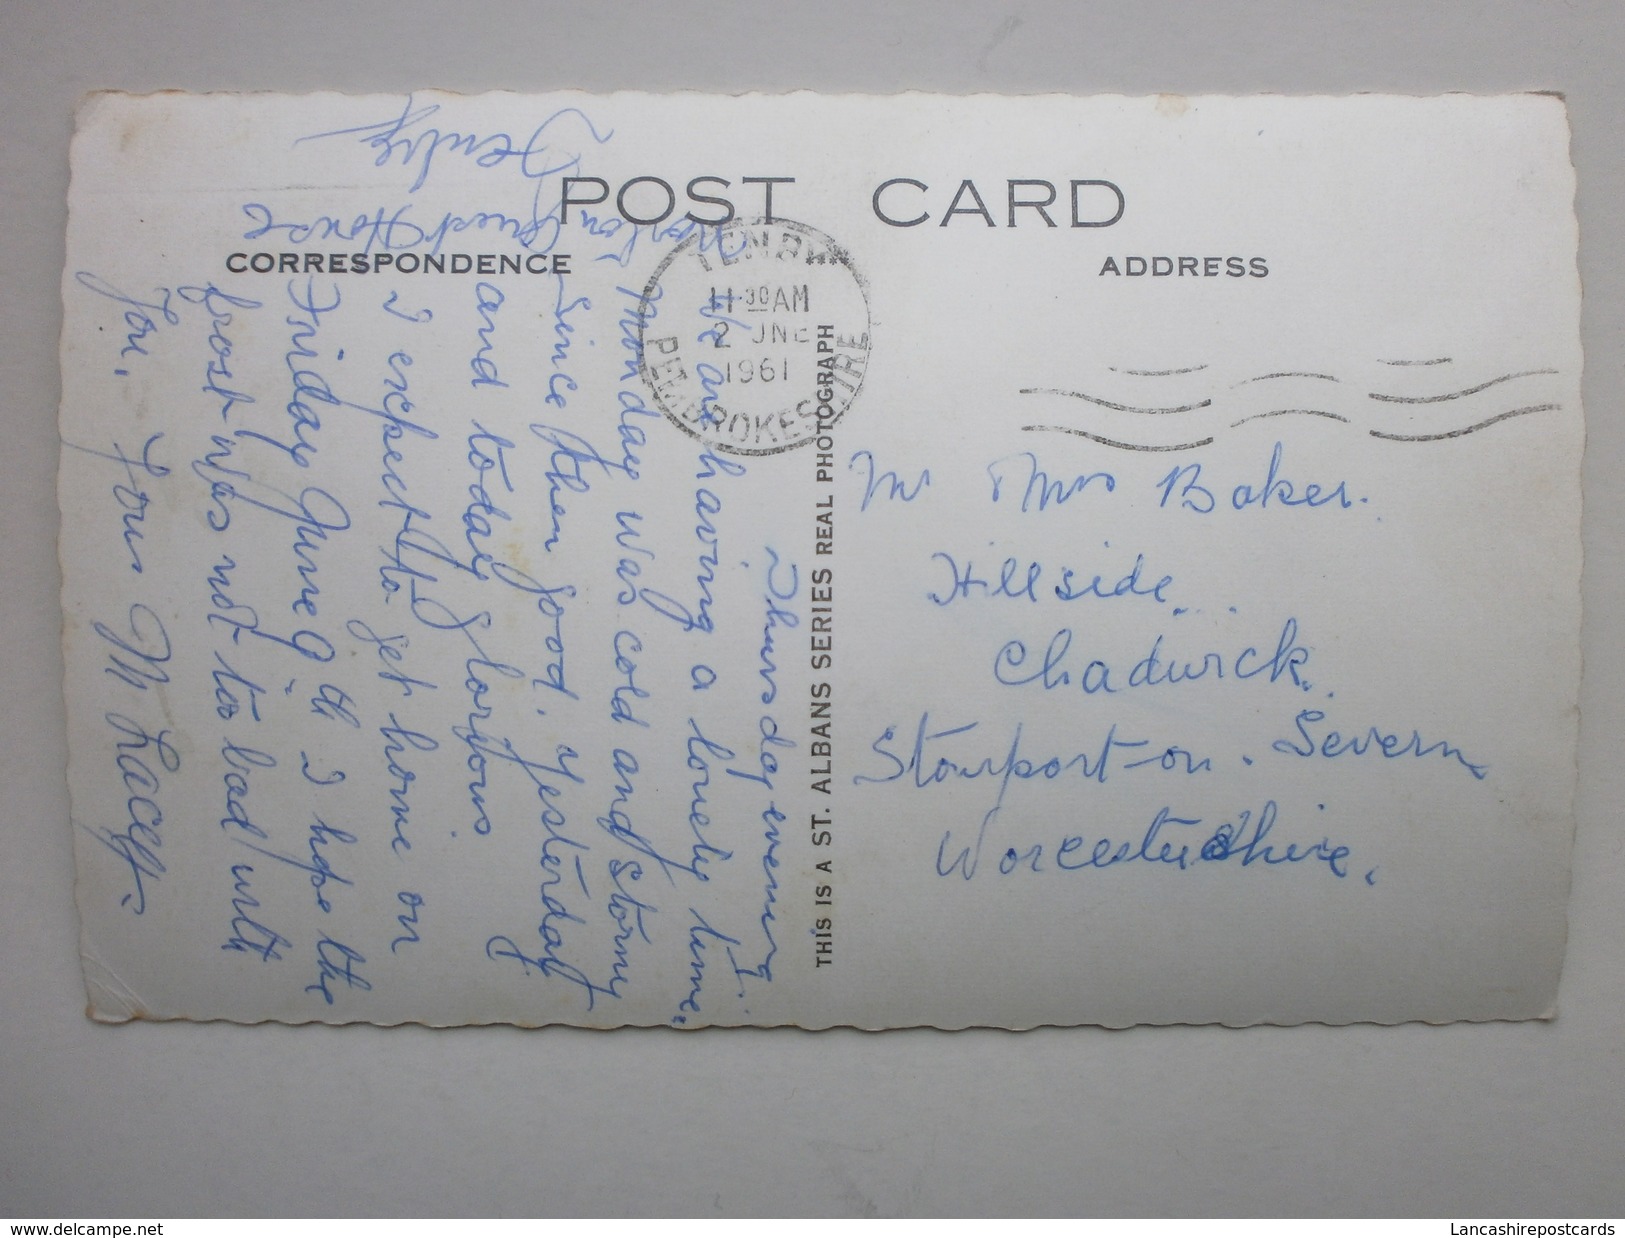 POST CARD
CORRESPONDENCE
ADDRESS
TENBY
11-30 AM
2 JNE
1961
PEMBROKESHIRE
THIS IS A ST. ALBANS SERIES REAL PHOTOGRAPH
Guest House
Tenby
Thursday evening.
We are having a lovely time,
Monday was cold and stormy
since then good. yesterday
and today glorious
I expect to get home on
Friday June 9th I hope the
frost was not too bad with
You. Yours M Lacey.
Mr Mrs Baker.
Hillside
Chadwick.
Stourport-on-Severn
Worcestershire.
www.delcampe.net
Lancashirepostcards